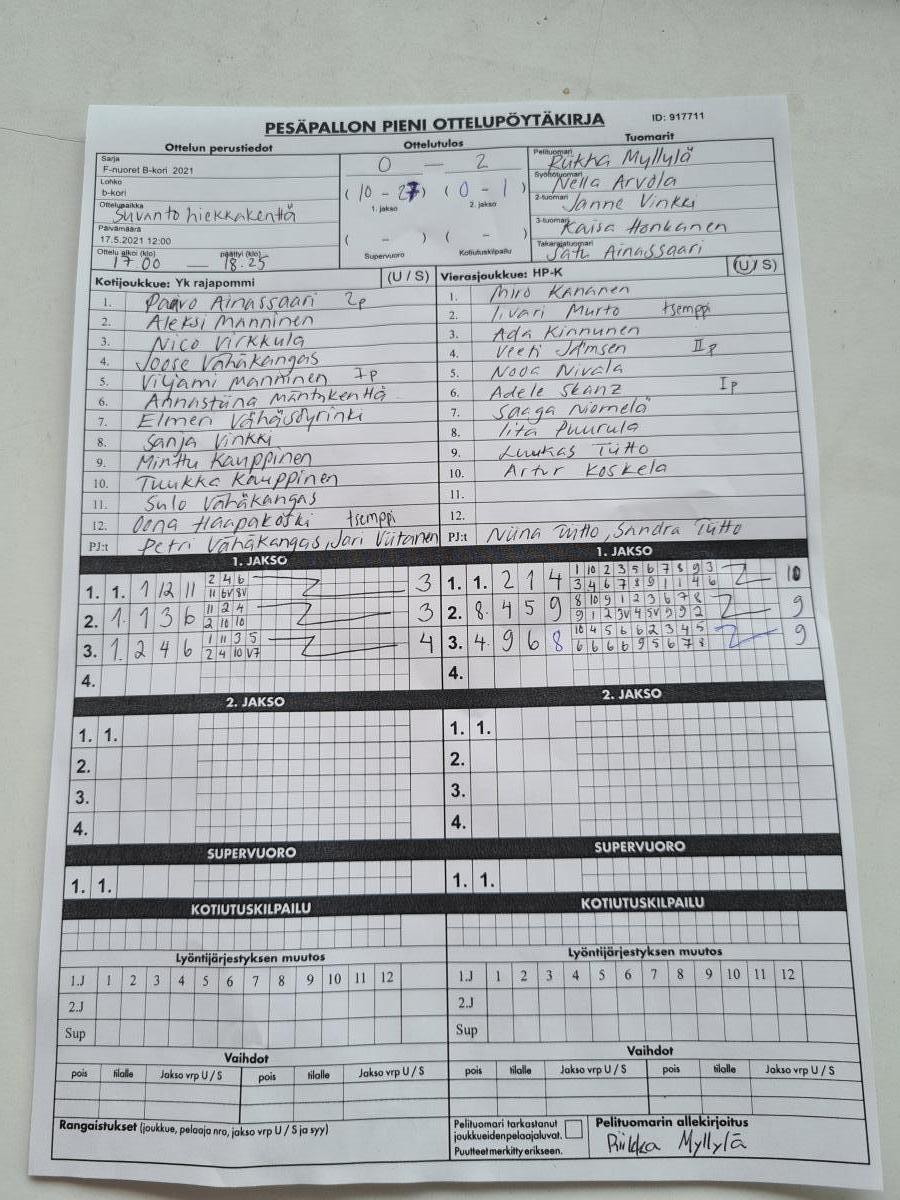 PESÄPALLON PIENI OTTELUPÖYTÄKIRJA
ID: 917711
Ottelun perustiedot
Sarja
F-nuoret B-kori 2021
Lohko
b-kori
Ottelupaikka
Suvanto hiekkakenttä
Päivämäärä
17.5.2021 12:00
Ottelu alkoi (klo) päättyi (klo)
17.00 — 18.25
Ottelutulos
0 — 2
(10 - 27) (0 - 1)
1. jakso 2. jakso
( - ) ( - )
Supervuoro Kotiutuskilpailu
Tuomarit
Pelituomari Riikka Myllylä
Syöttötuomari Nella Arvola
2-tuomari Janne Vinkki
3-tuomari Kaisa Honkanen
Takarajatuomari Satu Ainassaari
Kotijoukkue: Yk rajapommi (U / S)
1. Paavo Ainassaari 2p
2. Aleksi Manninen
3. Nico Virkkula
4. Joose Vähäkangas
5. Viljami Manninen 1p
6. Annastiina Mäntykenttä
7. Elmeri Vähäsöyrinki
8. Sanja Vinkki
9. Minttu Kauppinen
10. Tuukka Kauppinen
11. Sulo Vähäkangas
12. Oona Haapakoski tsemppi
PJ:t Petri Vähäkangas, Jari Viitanen
Vierasjoukkue: HP-K (U / S)
1. Miro Kananen
2. Iivari Murto tsemppi
3. Ada Kinnunen
4. Veeti Jämsen IIp
5. Nooa Nivala
6. Adele Skanz Ip
7. Saaga Niemelä
8. Iita Puurula
9. Luukas Tütto
10. Artur Koskela
11.
12.
PJ:t Niina Tütto, Sandra Tütto
1. JAKSO
1. 1. 1 12 11 2 4 6 3
11 6V 8V
2. 1. 1 3 6 11 2 4 3
2 10 10
3. 1. 2 4 6 1 11 3 5 4
2 4 10 V7
4.
1. JAKSO
1. 1. 2 1 4 1 10 2 3 5 6 7 8 9 3 10
3 4 6 7 8 9 1 1 4 6
2. 8. 4 5 9 8 10 9 1 2 3 6 7 8 9
9 1 2 3V 4 5V 9 9 2
3. 4. 9 6 8 10 4 5 6 6 2 3 4 5 9
6 6 6 6 9 5 6 7 8
4.
2. JAKSO
1. 1.
2.
3.
4.
2. JAKSO
1. 1.
2.
3.
4.
SUPERVUORO
1. 1.
SUPERVUORO
1. 1.
KOTIUTUSKILPAILU
KOTIUTUSKILPAILU
Lyöntijärjestyksen muutos
1.J 1 2 3 4 5 6 7 8 9 10 11 12
2.J
Sup
Lyöntijärjestyksen muutos
1.J 1 2 3 4 5 6 7 8 9 10 11 12
2.J
Sup
Vaihdot
pois tilalle Jakso vrp U / S pois tilalle Jakso vrp U / S
Vaihdot
pois tilalle Jakso vrp U / S pois tilalle Jakso vrp U / S
Rangaistukset (joukkue, pelaaja nro, jakso vrp U / S ja syy)
Pelituomari tarkastanut
joukkueiden pelaajaluvat.
Puutteet merkitty erikseen.
Pelituomarin allekirjoitus
Riikka Myllylä